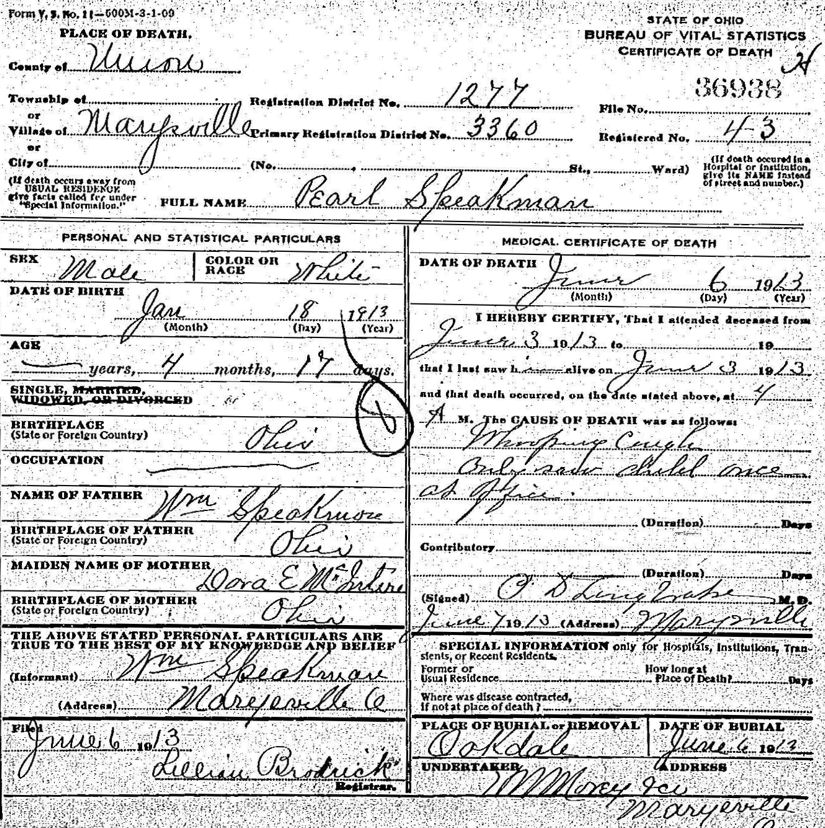 Form V. S. No. 11—500M-3-1-09
PLACE OF DEATH.
County of Union
Township of
or
Village of Marysville
or
City of
(If death occurs away from
USUAL RESIDENCE
give facts called for under
"Special Information.")
STATE OF OHIO
BUREAU OF VITAL STATISTICS
CERTIFICATE OF DEATH
Registration District No. 1277
File No. 36938
Primary Registration District No. 3360
Registered No. 43
(No. , St., Ward)
(If death occured in a
Hospital or Institution,
give its NAME instead
of street and number.)
FULL NAME Pearl Speakman
PERSONAL AND STATISTICAL PARTICULARS
SEX Male
COLOR OR
RACE White
DATE OF BIRTH
Jan 18 1913
(Month) (Day) (Year)
AGE
— years, 4 months, 17 days.
8
SINGLE, MARRIED,
WIDOWED, OR DIVORCED
BIRTHPLACE
(State or Foreign Country) Ohio
OCCUPATION
NAME OF FATHER Wm Speakman
BIRTHPLACE OF FATHER
(State or Foreign Country) Ohio
MAIDEN NAME OF MOTHER
Dora E McIntire
BIRTHPLACE OF MOTHER
(State or Foreign Country) Ohio
THE ABOVE STATED PERSONAL PARTICULARS ARE
TRUE TO THE BEST OF MY KNOWLEDGE AND BELIEF
(Informant) Wm Speakman
(Address) Marysville O
Filed
June 6 1913
Lillian Brodrick
Registrar.
MEDICAL CERTIFICATE OF DEATH
DATE OF DEATH
June 6 1913
(Month) (Day) (Year)
I HEREBY CERTIFY, That I attended deceased from
June 3 1913 to 19
that I last saw h im alive on June 3 1913
and that death occurred, on the date stated above, at 4
A M. The CAUSE OF DEATH was as follows:
Whooping Cough
Only saw child once
at office.
(Duration) Days
Contributory
(Duration) Days
(Signed) M. D.
June 7 1913 (Address) Marysville
SPECIAL INFORMATION only for Hospitals, Institutions, Tran-
sients, or Recent Residents.
Former or
Usual Residence
How long at
Place of Death? Days
Where was disease contracted,
if not at place of death?
PLACE OF BURIAL or REMOVAL
Oakdale
DATE OF BURIAL
June 6 1913
UNDERTAKER
ADDRESS
Marysville